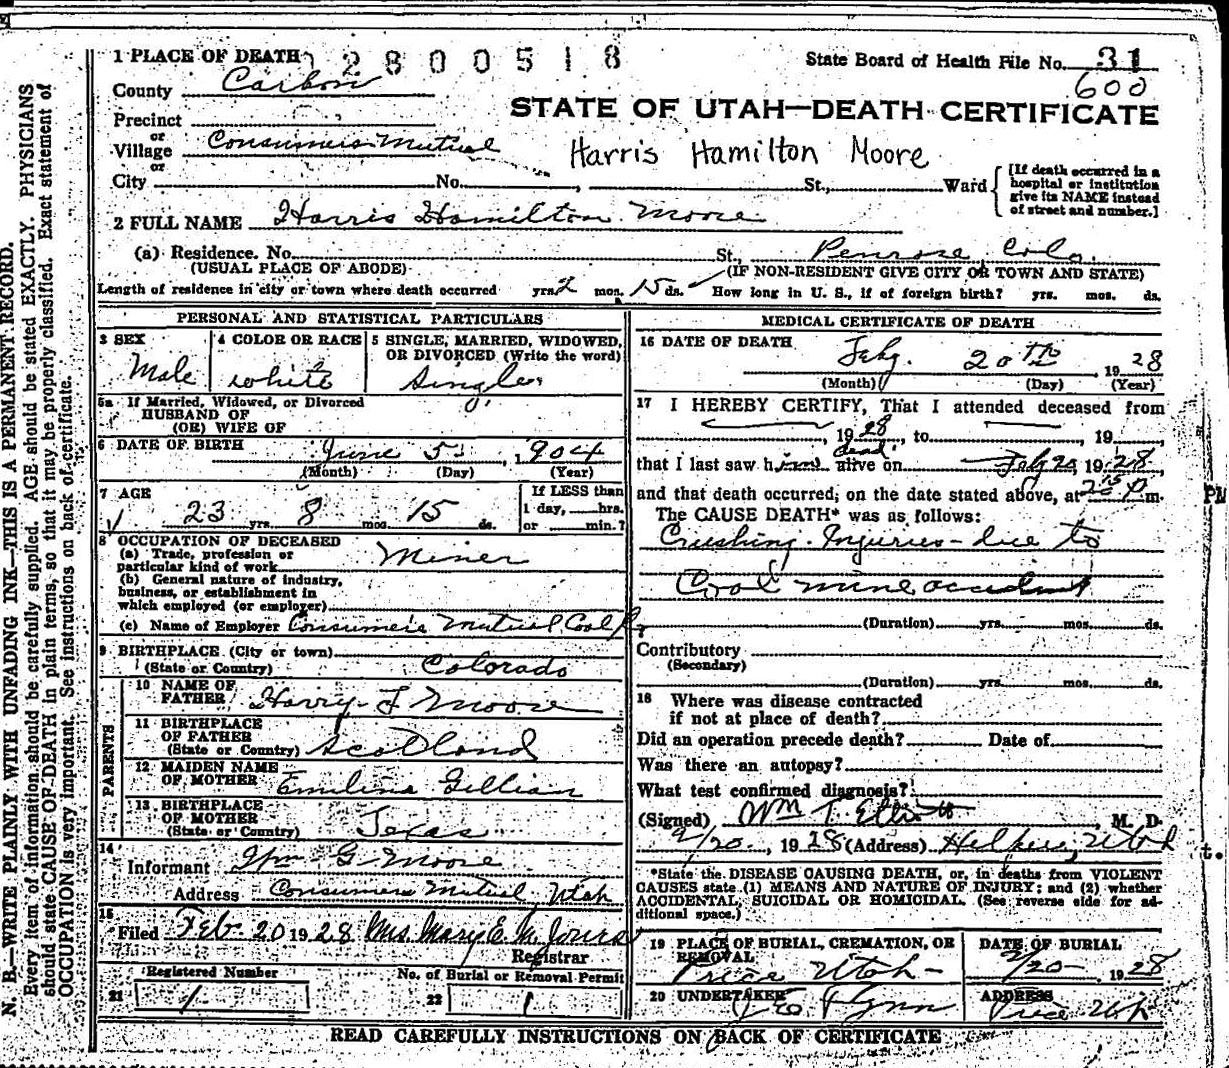 1 PLACE OF DEATH 12800518
State Board of Health File No. 31
600
County Carbon
STATE OF UTAH—DEATH CERTIFICATE
Precinct
or
Village Consumers Mutual
Harris Hamilton Moore
or
City No. , St., Ward
[If death occurred in a
hospital or institution
give its NAME instead
of street and number.]
2 FULL NAME Harris Hamilton Moore
(a) Residence. No. St., Penrose, Colo.
(USUAL PLACE OF ABODE) (IF NON-RESIDENT GIVE CITY OR TOWN AND STATE)
Length of residence in city or town where death occurred yrs. 2 mos. 15 ds. How long in U. S., if of foreign birth? yrs. mos. ds.
PERSONAL AND STATISTICAL PARTICULARS
3 SEX Male
4 COLOR OR RACE white
5 SINGLE, MARRIED, WIDOWED,
OR DIVORCED (Write the word)
Single
5a If Married, Widowed, or Divorced
HUSBAND OF
(OR) WIFE OF
6 DATE OF BIRTH June 5, 1904
(Month) (Day) (Year)
7 AGE
23 yrs. 8 mos. 15 ds.
If LESS than
1 day, hrs.
or min.?
8 OCCUPATION OF DECEASED
(a) Trade, profession or
particular kind of work Miner
(b) General nature of industry,
business, or establishment in
which employed (or employer)
(c) Name of Employer Consumers Mutual Coal
9 BIRTHPLACE (City or town)
(State or Country) Colorado
PARENTS
10 NAME OF
FATHER Harry F Moore
11 BIRTHPLACE
OF FATHER
(State or Country) Scotland
12 MAIDEN NAME
OF MOTHER Emiline Gillian
13 BIRTHPLACE
OF MOTHER
(State or Country) Texas
14
Informant Wm G Moore
Address Consumers Mutual, Utah
15
Filed Feb 20 1928 Mrs. Mary E. M. Jones
Registrar
Registered Number
21 1
No. of Burial or Removal Permit
22 1
MEDICAL CERTIFICATE OF DEATH
16 DATE OF DEATH
Feby. 20th, 1928
(Month) (Day) (Year)
17 I HEREBY CERTIFY, That I attended deceased from
, 1928, to , 19
dead
that I last saw him alive on Feby 20, 1928,
and that death occurred, on the date stated above, at P.m.
PM
The CAUSE DEATH* was as follows:
Crushing Injuries - due to
Coal mine accident
(Duration) yrs. mos. ds.
Contributory
(Secondary)
(Duration) yrs. mos. ds.
18 Where was disease contracted
if not at place of death?
Did an operation precede death? Date of
Was there an autopsy?
What test confirmed diagnosis?
(Signed) Wm T. Elliott, M. D.
2/20, 1928 (Address) Helper, Utah
*State the DISEASE CAUSING DEATH, or, in deaths from VIOLENT
CAUSES state (1) MEANS AND NATURE OF INJURY; and (2) whether
ACCIDENTAL, SUICIDAL OR HOMICIDAL. (See reverse side for ad-
ditional space.)
19 PLACE OF BURIAL, CREMATION, OR
REMOVAL
Price Utah
DATE OF BURIAL
2/20 1928
20 UNDERTAKER
Flynn
ADDRESS
Price Utah
READ CAREFULLY INSTRUCTIONS ON BACK OF CERTIFICATE
N. B.—WRITE PLAINLY WITH UNFADING INK—THIS IS A PERMANENT RECORD.
Every item of information should be carefully supplied. AGE should be stated EXACTLY. PHYSICIANS
should state CAUSE OF DEATH in plain terms, so that it may be properly classified. Exact statement of
OCCUPATION is very important. See instructions on back of certificate.